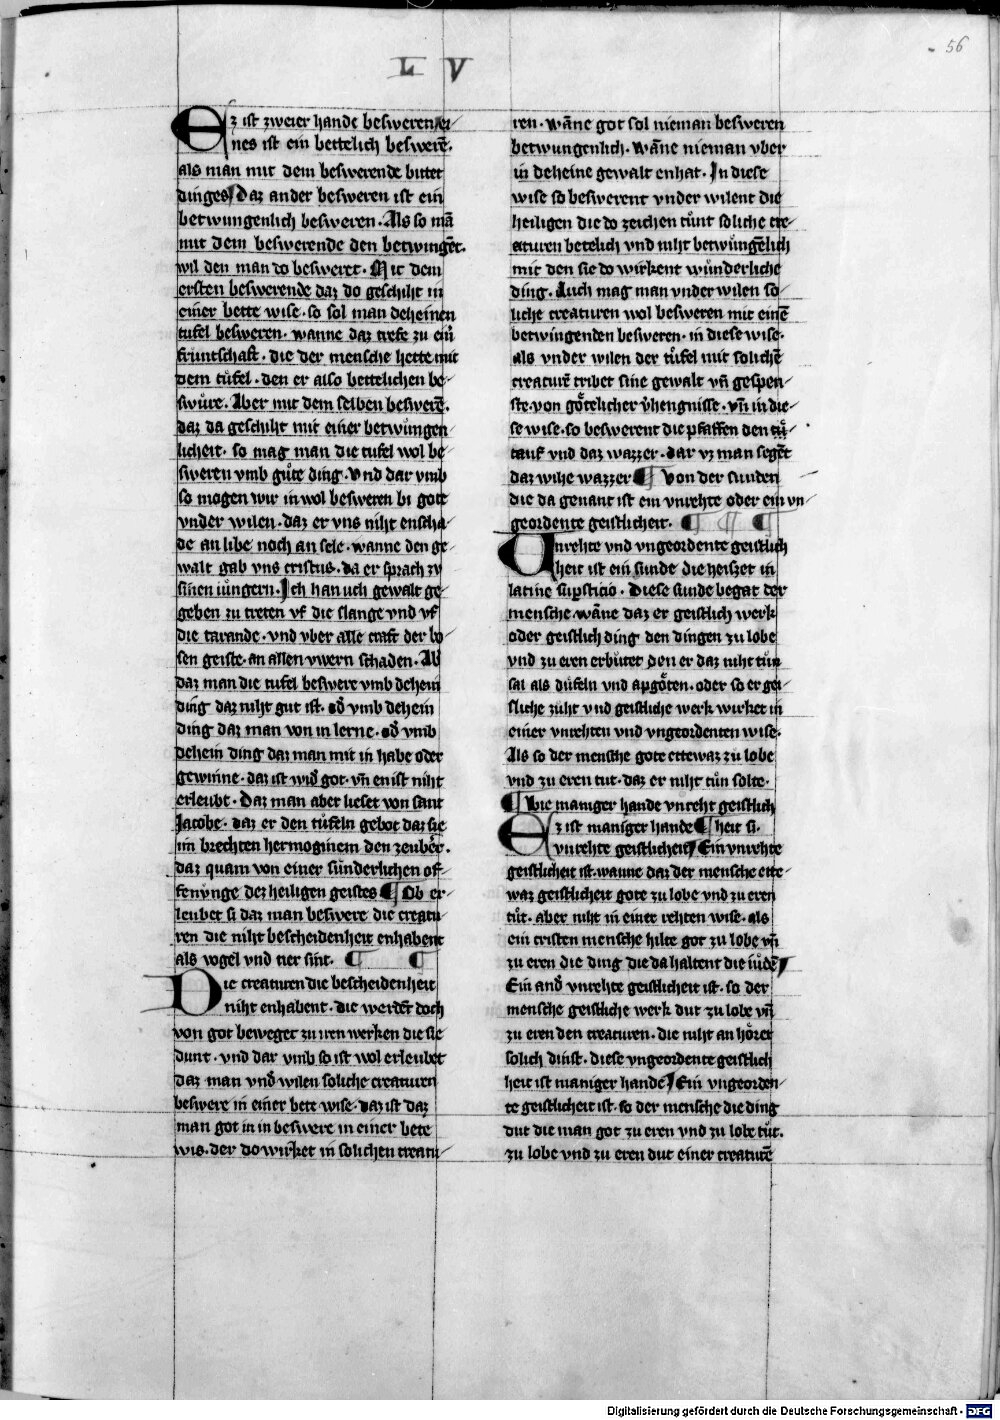 56
L V
Ez ist zweier hande besweren/ ei
nes ist ein bettelich beswerē.
als man mit dem beswerende bittet
dinges/ Daz ander besweren ist ein
betwungenlich besweren. Als so mā
mit dem beswerende den betwingēt.
wil den man do besweret. Mit dem
ersten beswerende daz do geschiht in
einer bette wise. so sol man deheinen
tufel besweren. wanne daz trefe zu eiṅ
fruntschaft. die der mensche hette mit
dem tuͦfel. den er also bettelichen be
swuͦre. Aber mit dem selben beswerē.
daz da geschiht mit einer betwuͦngen
licheit. so mag man die tufel wol be
sweren vmb guͦte ding. Vnd dar vmb
so mogen wir in wol besweren bi gott
vnder wilen. daz er vns niht enscha
de an libe noch an sele. wanne den ge
walt gab vns cristus. da er sprach zv
sinen iuͦngern. Ich han uch gewalt ge
geben zu treten vf die slange vnd vf
die tarande. vnd vber alle craft der bo
sen geiste. an allen vwern schaden. Ab̛
daz man die tufel beswere vmb dehein
ding daz niht gut ist. od̛ vmb dehein
ding daz man von in lerne. od̛ vmb
dehein ding daz man mit in habe oder
gewinne. daz ist wid̛ got. vn̄ en ist niht
erleubt. Daz man aber liset von sant
Jacobe. daz er den tuͦfeln gebot daz sie
im brechten hermoginem den zeuber̛.
daz quam von einer suͦnderlichen of
fenvnge dez heiligen geistes ¶ Ob er
leubet si daz man beswere die creatu
ren die niht bescheidenheit enhabent
als vogel vnd tier sint. ¶ ¶
Die creaturen die bescheidenheit
niht enhabent. die werdēt doch
von got beweget zu iren werken die sie
dunt. vnd dar vmb so ist wol erleubet
daz man vnd̛ wilen soliche creaturen
beswere in einer bete wise. daz ist daz
man got in in beswere in einer bete
wis. der do wirket in solichen creatu
ren. wāne got sol nieman besweren
betwungenlich. wāne nieman vber
in deheine gewalt enhat. In diese
wise so beswerent vnder wilent die
heiligen die do zeichen tuͦnt soliche cre
aturen betelich vnd niht betwuͦngēlich
mit den sie do wirkent wuͦnderliche
ding. Auch mag man vnder wilen so
liche creaturen wol besweren mit einē
betwingenden besweren. in diese wise.
als vnder wilen der tuͦfel mit solichē
creaturē tribet sine gewalt vn̄ gespen
ste. von goͤtelicher v̛hengnisse. vn̄ in die
se wise. so beswerent die pfaffen den tuͦ
tauf vnd daz wazzer. dar vz man segēt
daz wihe wazzer ¶ Von der sunden
die da genant ist ein vnrehte oder ein vn
geordente geistlicheit. ¶ ¶ ¶
Unrehte vnd vngeordente geistlich
heit ist ein sunde die heiszet in
latine suꝑsticio. Diese sunde begat der
mensche. wāne daz er geistlich werk
oder geistlich ding den dingen zu lobe
vnd zu eren erbuͦtet den er daz niht tuͦn
sal als duͦfeln vnd apgoͤten. oder so er gei
sliche zuht vnd geistliche werk wirket in
einer vnrehten vnd vngeordenten wise.
Als so der mensche gote ettewaz zu lobe
vnd zu eren tut. daz er niht tuͦn solte.
¶ Wie maniger hande vnreht geistlich
Ez ist maniger hande ¶ heit si.
vnrehte geistlicheit/ Ein vnrehte
geistlicheit ist. wanne daz der mensche ette
waz geistlicheit gote zu lobe vnd zu eren
tuͦt. aber niht in einer rehten wise. als
ein cristen mensche hilte got zu lobe vn̄
zu eren die ding die da haltent die iuͦdē/
Ein and̛ vnrehte geistlicheit ist. so der
mensche geistliche werk dut zu lobe vn̄
zu eren den creaturen. die niht an hoͤret
solich dinst. diese vngeordente geistlich
heit ist maniger hande/ Ein vngeorden
te geistlicheit ist. so der mensche die ding
dut die man got zu eren vnd zu lobe tuͦt.
zu lobe vnd zu eren dut einer creaturē
Digitalisierung gefördert durch die Deutsche Forschungsgemeinschaft - DFG